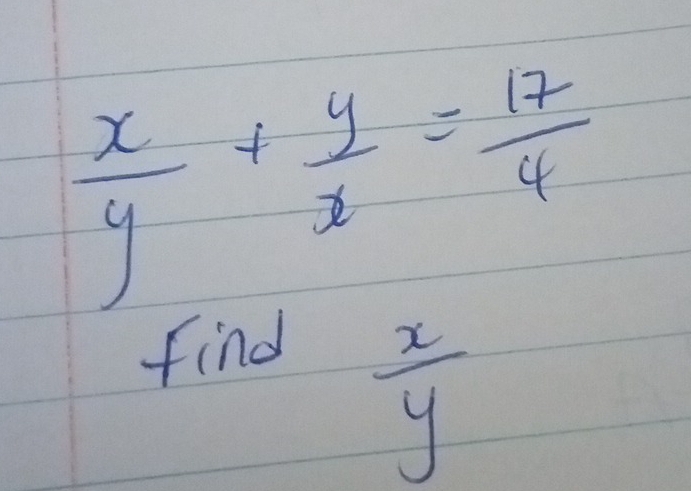 x/y + y/x = 17/4
find x/y